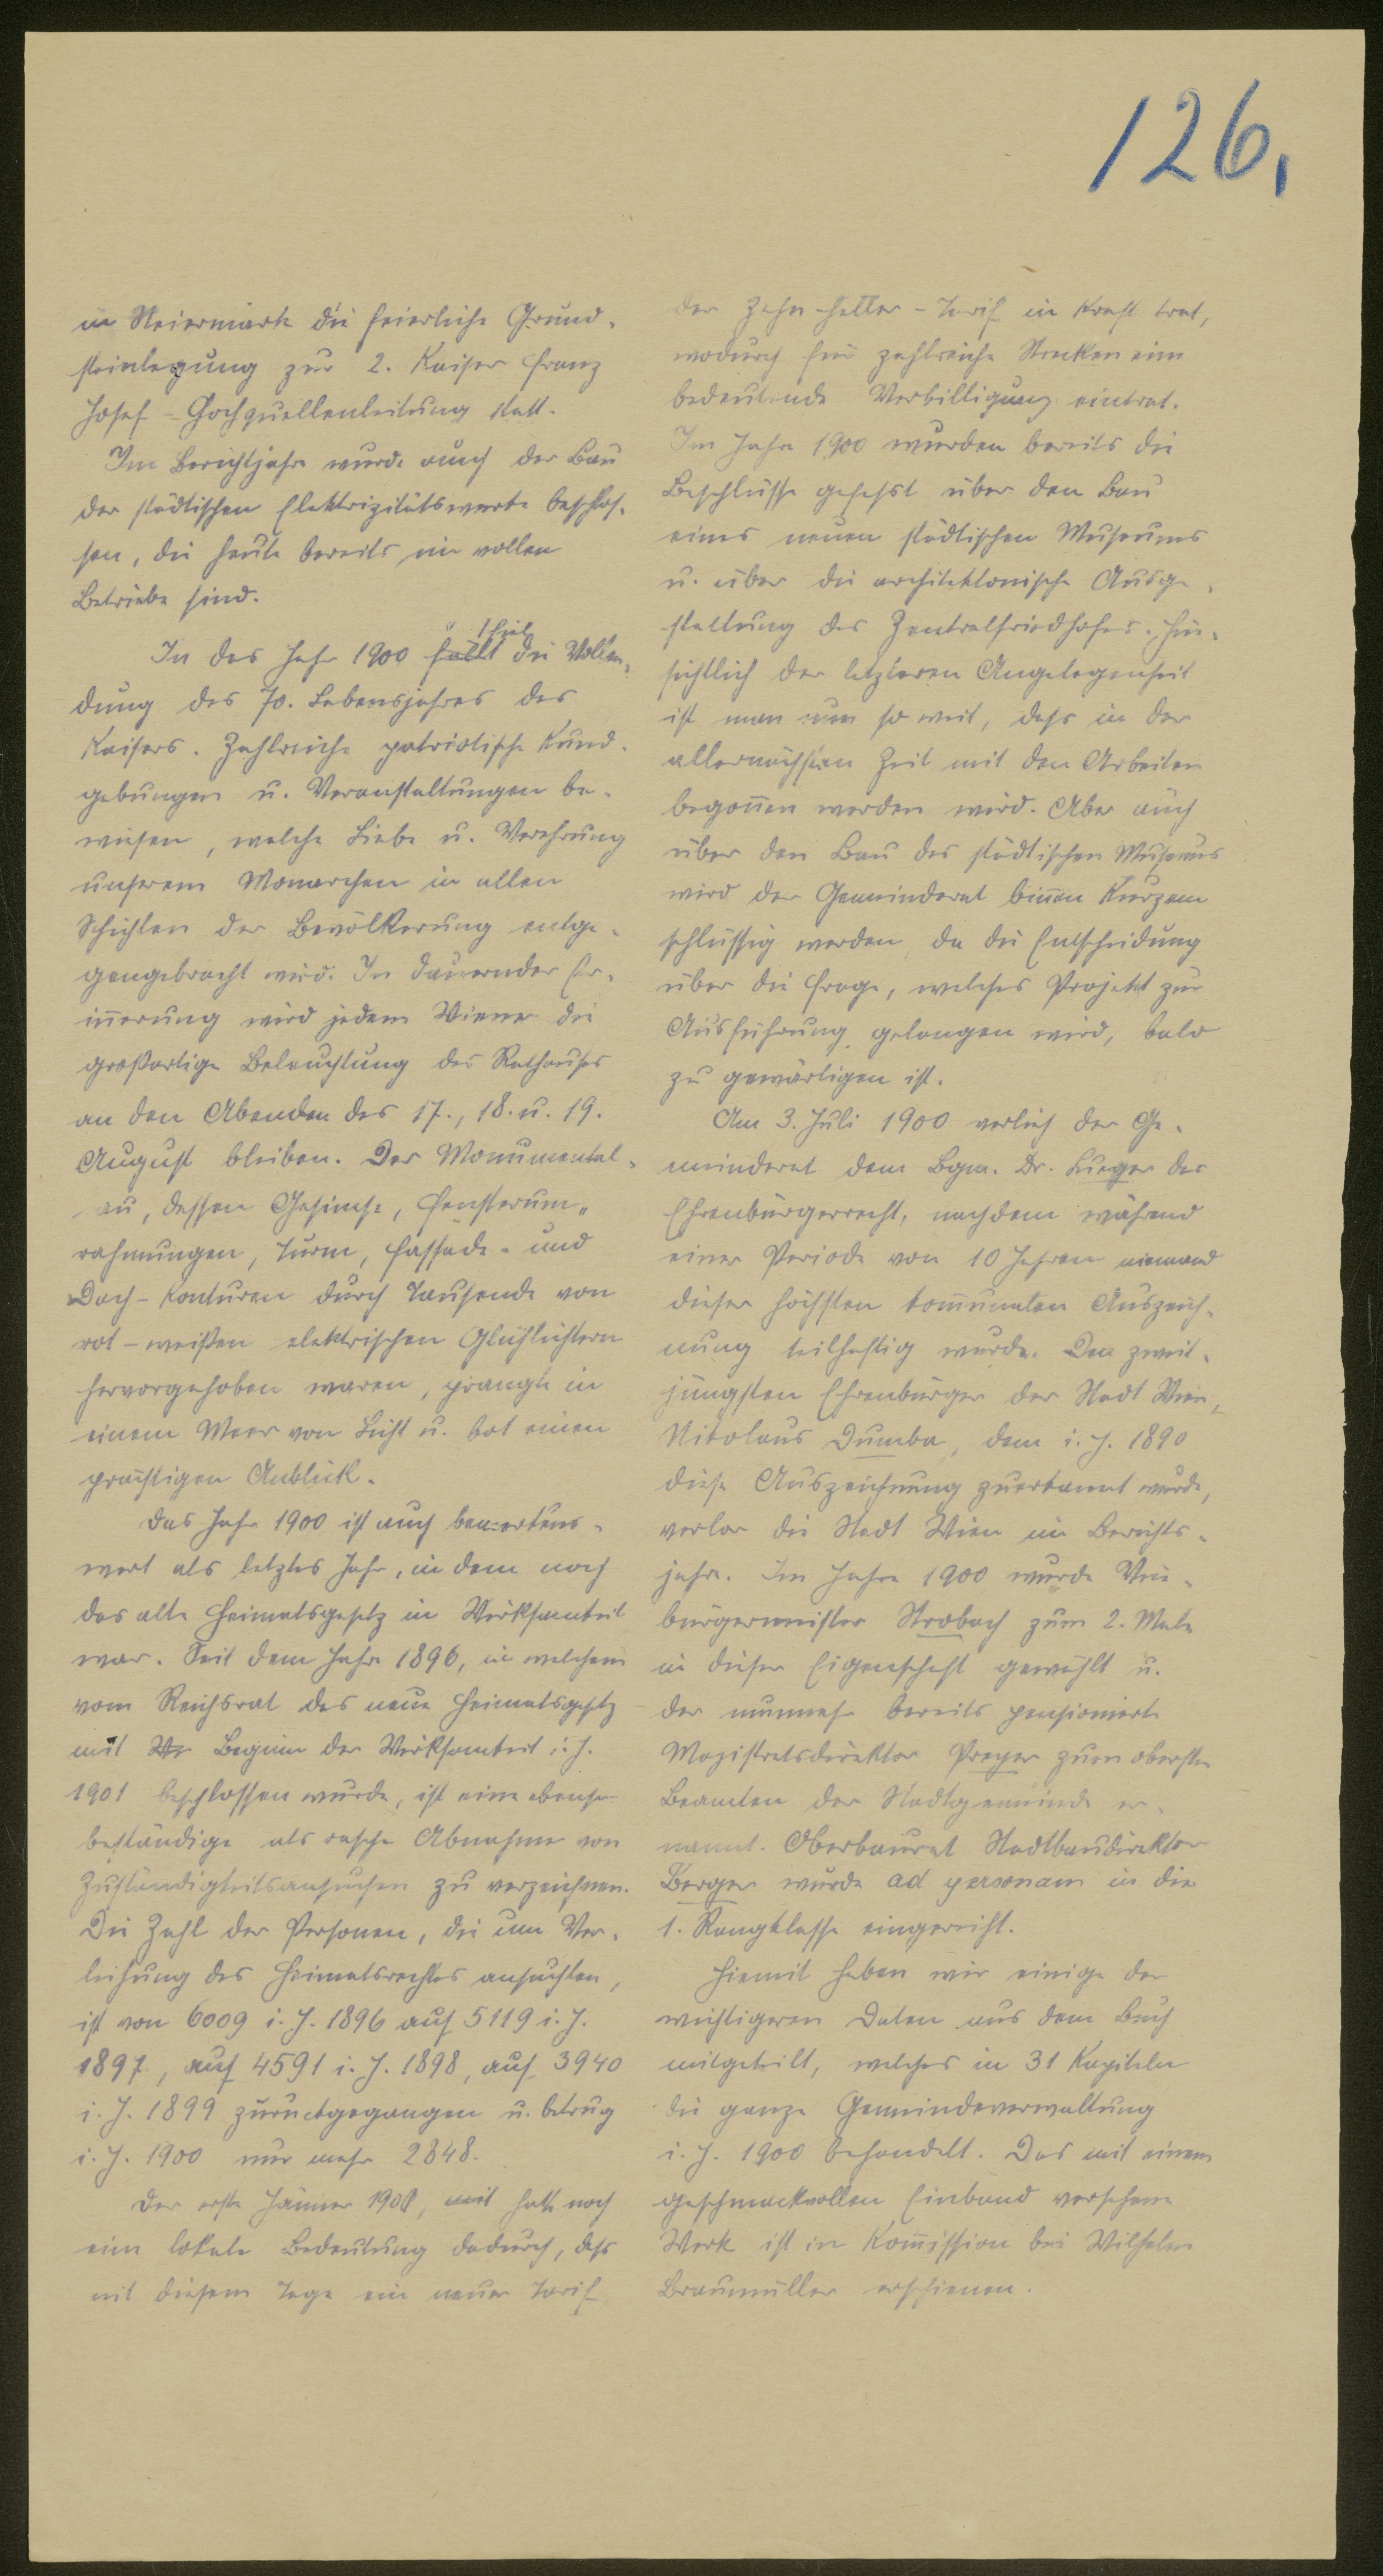 126,
in Steiermark die feierliche Grund-
steinlegung zur 2. Kaiser Franz
Josef-Hochquellenleitung statt.
Im Berichtjahre wurde auch der Bau
der städtischen Elektrizitätswerke beschlos-
sen, die heute bereits im vollen
Betriebe sind.
In das Jahr 1900 fällt fiel die Vollen-
dung des 70. Lebensjahres des
Kaisers. Zahlreiche patriotische Kund-
gebungen u. Veranstaltungen be-
wiesen, welche Liebe u. Verehrung
unserem Monarchen in allen
Schichten der Bevölkerung entge-
gengebracht wird. In dauernder Er-
iñerung wird jedem Wiener die
großartige Beleuchtung des Rathauses
an den Abenden des 17., 18. u. 19.
August bleiben. Der Monumental-
bau, dessen Gesimse, Fensterum-
rahmungen, Turm, Fassade- und
Dach-Konturen durch Tausende von
rot-weißen elektrischen Glühlichtern
hervorgehoben waren, prangte in
einem Meer von Licht u. bot einen
prächtigen Anblick.
Das Jahr 1900 ist auch bemerkens-
wert als letztes Jahr, in dem noch
das alte Heimatsgesetz in Wirksamkeit
war. Seit dem Jahre 1896, in welchem
vom Reichsrat das neue Heimatsgesetz
mit Beginn der Wirksamkeit i. J.
1901 beschlossen wurde, ist eine ebenso
beständige als rasche Abnahme von
Zuständigkeitsansuchen zu verzeichnen.
Die Zahl der Personen, die um Ver-
leihung des Heimatsrechtes ansuchten,
ist von 6009 i. J. 1896 auf 5119 i. J.
1897, auf 4591 i. J. 1898, auf 3940
i. J. 1899 zurückgegangen u. betrug
i. J. 1900 nur mehr 2848.
Der erste Jänner 1900, mit hatte noch
eine lokale Bedeutung dadurch, dass
mit diesem Tage ein neuer Tarif
der Zehn-Heller-Tarif in Kraft trat,
wodurch für zahlreiche Strecken eine
bedeutende Verbilligung eintrat.
Im Jahre 1900 wurden bereits die
Beschlüsse gefasst über den Bau
eines neuen städtischen Museums
u. über die architektonische Ausge-
staltung des Zentralfriedhofes. Hin-
sichtlich der letzteren Angelegenheit
ist man nun so weit, dass in der
allernächsten Zeit mit den Arbeiten
begoñen werden wird. Aber auch
über den Bau des städtischen Museums
wird der Gemeinderat biñen Kurzem
schlüssig werden, da die Entscheidung
über die Frage, welches Projekt zur
Ausführung gelangen wird, bald
zu gewärtigen ist.
Am 3. Juli 1900 verlieh der Ge-
meinderat dem Bgm. Dr. Lueger das
Ehrenbürgerrecht, nachdem während
einer Periode von 10 Jahren niemand
dieser höchsten kom̃unalen Auszeich-
nung teilhaftig wurde. Den zweit-
jüngsten Ehrenbürger der Stadt Wien,
Nikolaus Dumba, dem i. J. 1890
diese Auszeichnung zuerkannt wurde,
verlor die Stadt Wien im Berichts-
jahre. Im Jahre 1900 wurde Vize-
bürgermeister Strobach zum 2. Male
in dieser Eigenschaft gewählt u.
der nunmehr bereits pensionierte
Magistratsdirektor Preyer zum obersten
Beamten der Stadtgemeinde er-
nannt. Oberbaurat Stadtbaudirektor
Berger wurde ad personam in die
1. Rangklasse eingereiht.
Hiemit haben wir einige der
wichtigeren Daten aus dem Buch
mitgeteilt, welches in 31 Kapiteln
die ganze Gemeindeverwaltung
i. J. 1900 behandelt. Das mit einem
geschmackvollen Einband versehene
Werk ist in Kom̃ission bei Wilhelm
Braumüller erschienen.